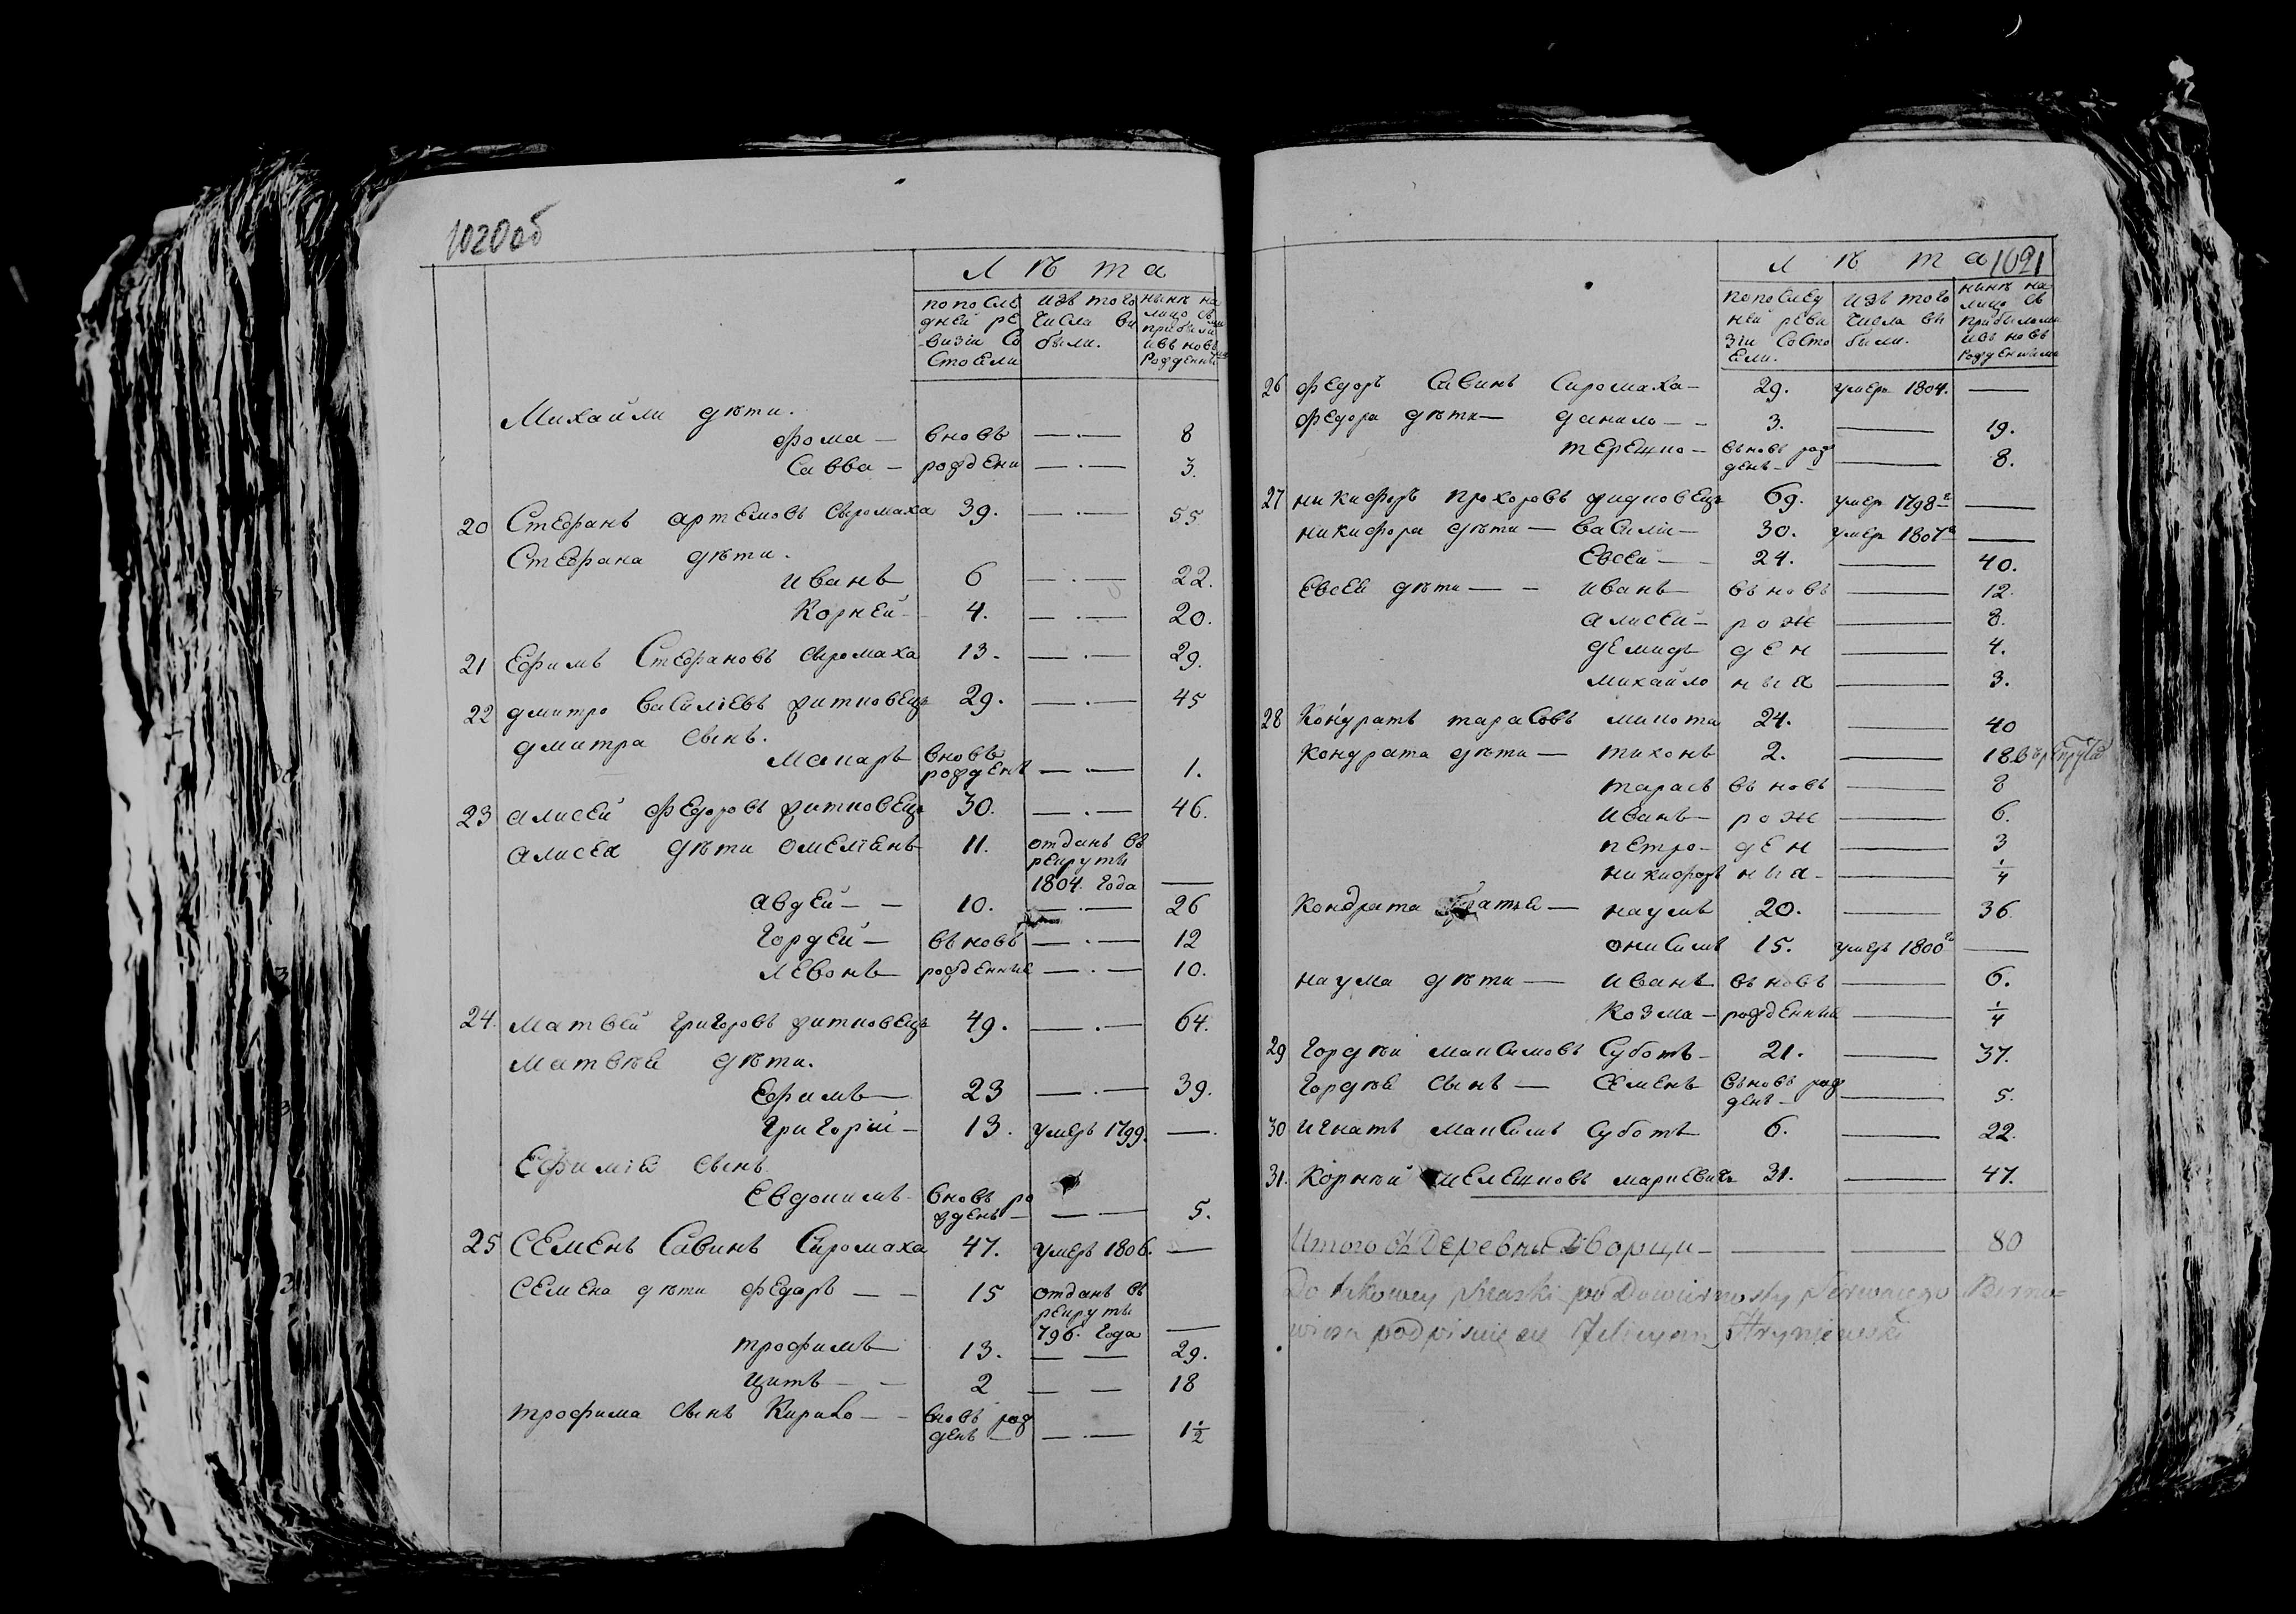 1020об
Л ѣ т а
по послѣ
дней ре
визіи со
стоели
изъ того
числа ви
были.
нынѣ на
лицо съ
прибыли
и въ новъ
рожденни
Михайли дѣти.
Фома — вновь — . — 8
Савва — рождени — . — 3.
20 Стефанъ Артемовъ Сыромаха 39. — . — 55
Стефана дѣти.
Иванъ 6 — . — 22.
Корней 4. — . — 20.
21 Ефимъ Стефановъ Сыромаха 13. — . — 29.
22 Дмитро Василіевъ Житковецъ 29. — . — 45
Дмитра сынъ.
Макаръ вновь
рожденъ — . — 1.
23 Алисей Федоровъ Житковецъ 30. — . — 46.
Алисея дѣти Омеліанъ 11. отданъ въ
рекруты
1804. года —
Авдей — — 10. — . — 26
Гордей — въ новъ — . — 12
Левонъ — рожденные — . — 10.
24. Матвей Григоровъ Житковецъ 49. — . — 64.
Матвѣя дѣти.
Ефимъ — 23 — . — 39.
Григорій — 13. умеръ 1799. — .
Сынъ
Евдокимъ вновь ро
жденъ — — . — 5.
25 Семенъ Савинъ Сыромаха 47. умеръ 1806. —
Семена дѣти Федаръ — — 15 отданъ въ
рекруты
796. года —
Трофимъ 13. — — 29.
Титъ — — 2 — — 18
Трофима сынъ Кирило — — вновь рож
денъ — — . — 1 1/2
Л ѣ т а 1021
по послед
ней реви
зіи состо
ели.
изъ того
числа ви
были.
нинѣ на
лицо съ
прибылыми
и въ новъ
рожденними
26 Федоръ Савинъ Сиромаха — 29. умеръ 1804. —
Федора дѣти — Данило — — 3. — 19.
Терешко — въ новъ рож
денъ — — 8.
27 Никифоръ Прохоровъ Жидковецъ 69. умеръ 1798 г —
Никифора дѣти — Васили — 30. умеръ 1807 г —
Евсей — — 24. — 40.
Евсея дѣти — — Иванъ въ новъ — 12.
Алисей — рож — 8.
Демидъ ден — 4.
Михайло ныя — 3.
28 Кондратъ Тарасовъ Микота 24. — 40
Кондрата дѣти — Тихонъ 2. — 18
Тарасъ въ новъ — 8
Иванъ — рож — 6.
Петро — ден — 3
Никифоръ ныя — — 1/4
Кондрата братья — Наумъ 20. — 36.
Онисимъ 15. умеръ 1800 го —
Наума дѣти — Иванъ въ новъ — 6.
Козма — рожденные — 1/4
29 Гордѣй Максимовъ Суботъ — 21. — 37.
Гордѣя сынъ — Семенъ въ новъ рож
денъ — — 5.
30 Игнатъ Максимъ Суботъ 6. — 22.
31. Корнѣй Мелешковъ Маркевичъ 31. — 47.
Итого въ деревнѣ Дворци — — — 80